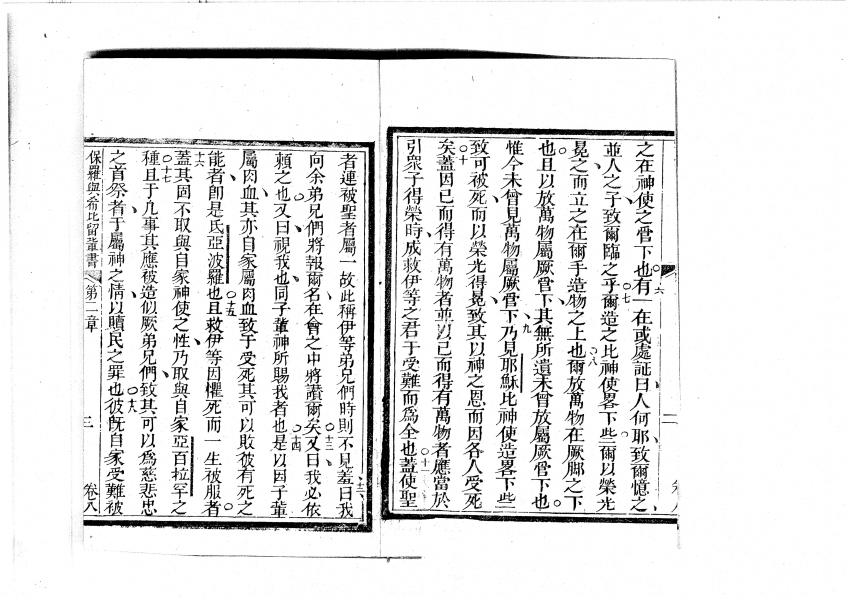 之在神使之啻下也六有一在或處証曰人何耶致爾憶之
並人之子致爾臨之乎七爾造之比神使畧下些爾以榮光
冕之而立之在爾手造物之上也八爾放萬物在厥脚之下
也且以放萬物屬厥啻下其無所遺未曾放屬厥啻下也
惟今未曾見萬物屬厥啻下九乃見耶穌比神使造畧下些
致可被死而以榮光得冕致其以神之恩而因各人受死
矣十蓋因已而得有萬物者並以已而得有萬物者應當於
引眾子得榮時成救伊等之君于受難而為全也十一蓋使聖
二
者連被聖者屬一故此稱伊等弟兄們時則不見羞十二曰我
向余弟兄們將報爾名在會之中將讚爾矣十三又曰我必依
賴之也又曰視我也同子輩神所賜我者也十四是以因子輩
屬肉血其亦自家屬肉血致于受死其可以敗彼有死之
能者卽是氏亞波羅也十五且救伊等因懼死而一生被服者
十六蓋其固不取與自家神使之性乃取與自家亞百拉罕之
種十七且于凡事其應被造似厥弟兄們致其可以為慈悲忠
之首祭者于屬神之情以贖民之罪也十八彼旣自家受難被
保羅與希比留輩書 第二章 三 卷八